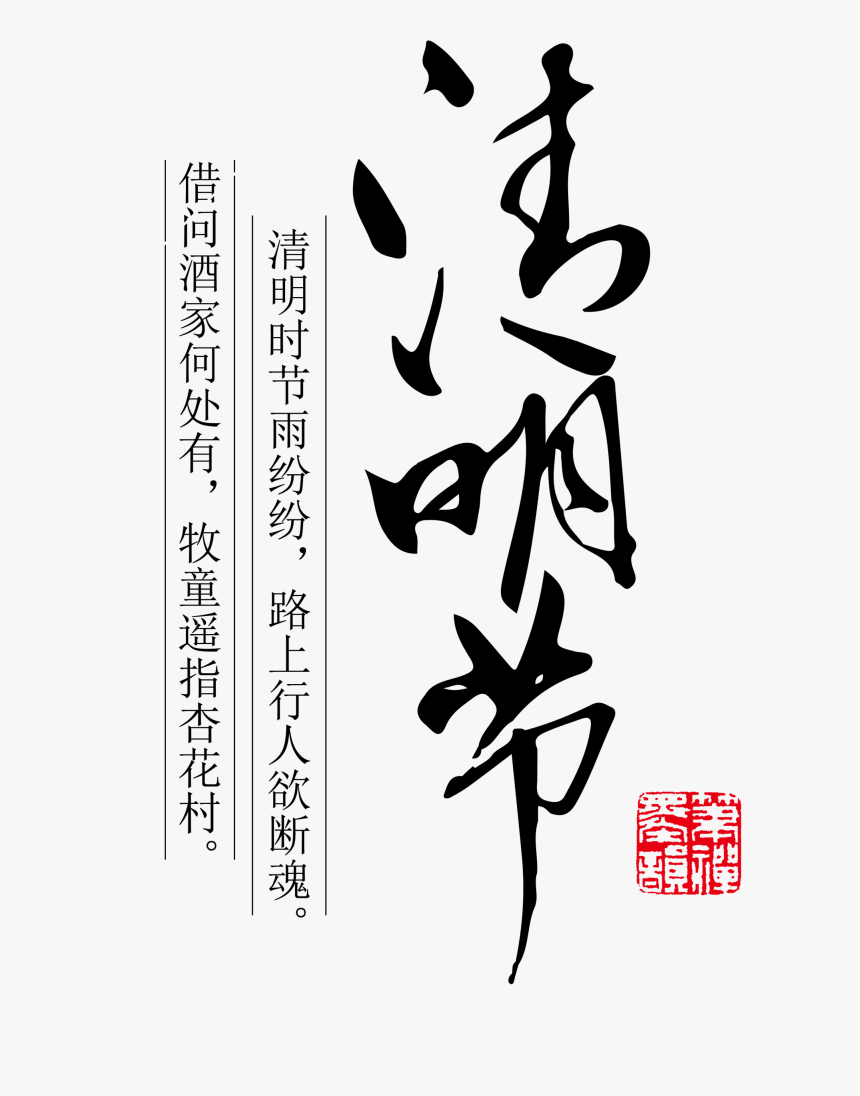 清明节
清明时节雨纷纷，路上行人欲断魂。
借问酒家何处有，牧童遥指杏花村。